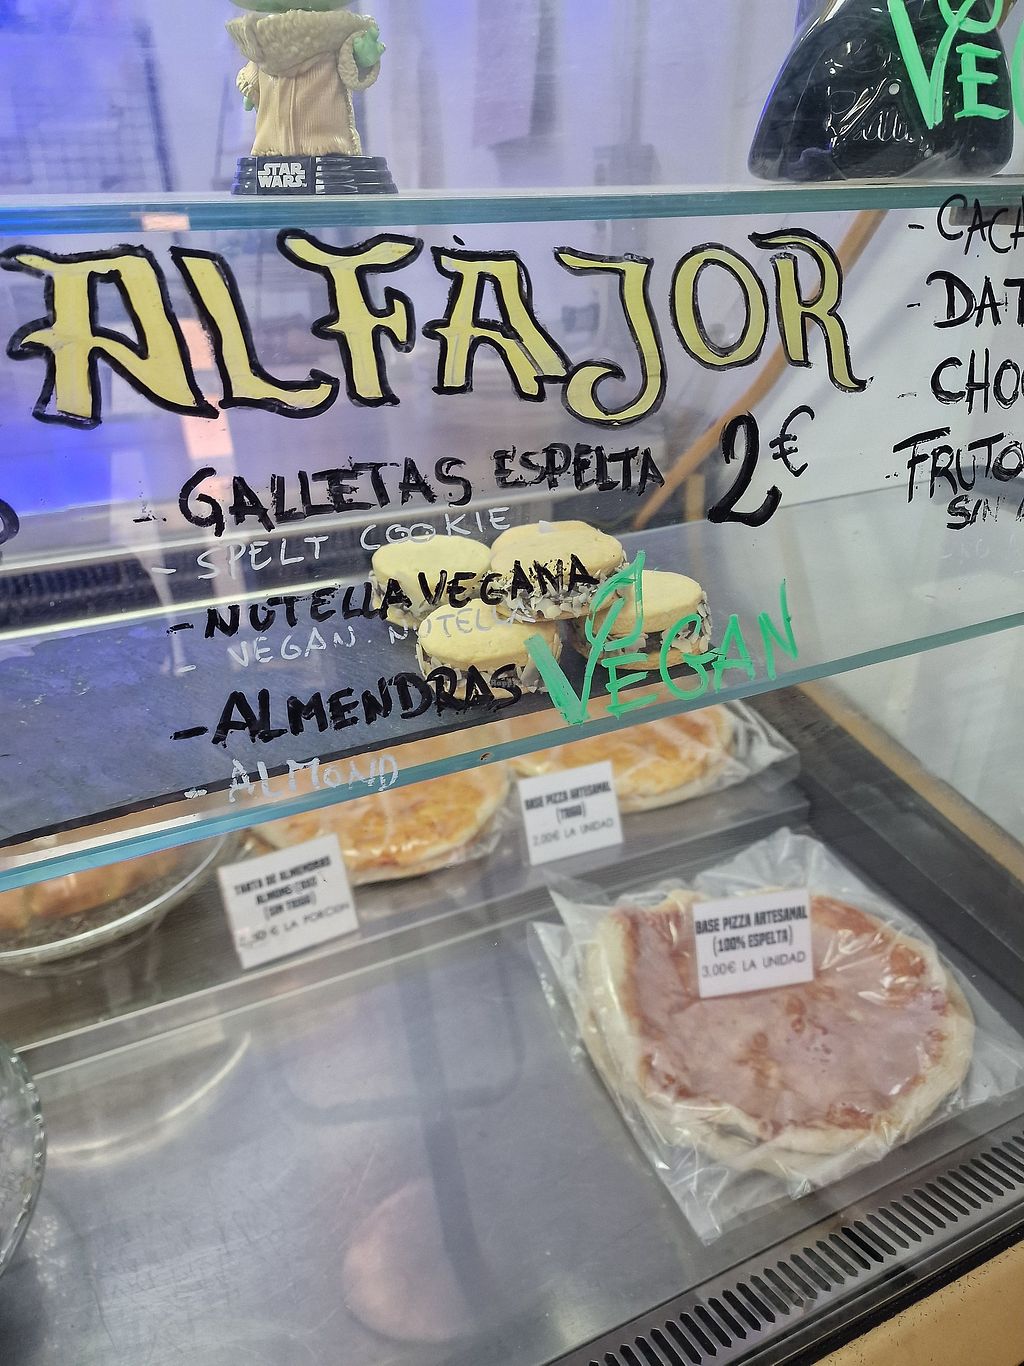 STAR
WARS
ALFAJOR
- GALLETAS ESPELTA 2€
- SPELT COOKIE
- NUTELLA VEGANA
- VEGAN NUTELLA
- ALMENDRAS VEGAN
- ALMOND
- 
- 
FRUTO
SIN
BASE PIZZA ARTESANAL
(TRIGO)
2,00€ LA UNIDAD
TARTA DE ALMENDRAS
(SIN TRIGO)
2,50 € LA PORCION
BASE PIZZA ARTESANAL
(100% ESPELTA)
3,00€ LA UNIDAD